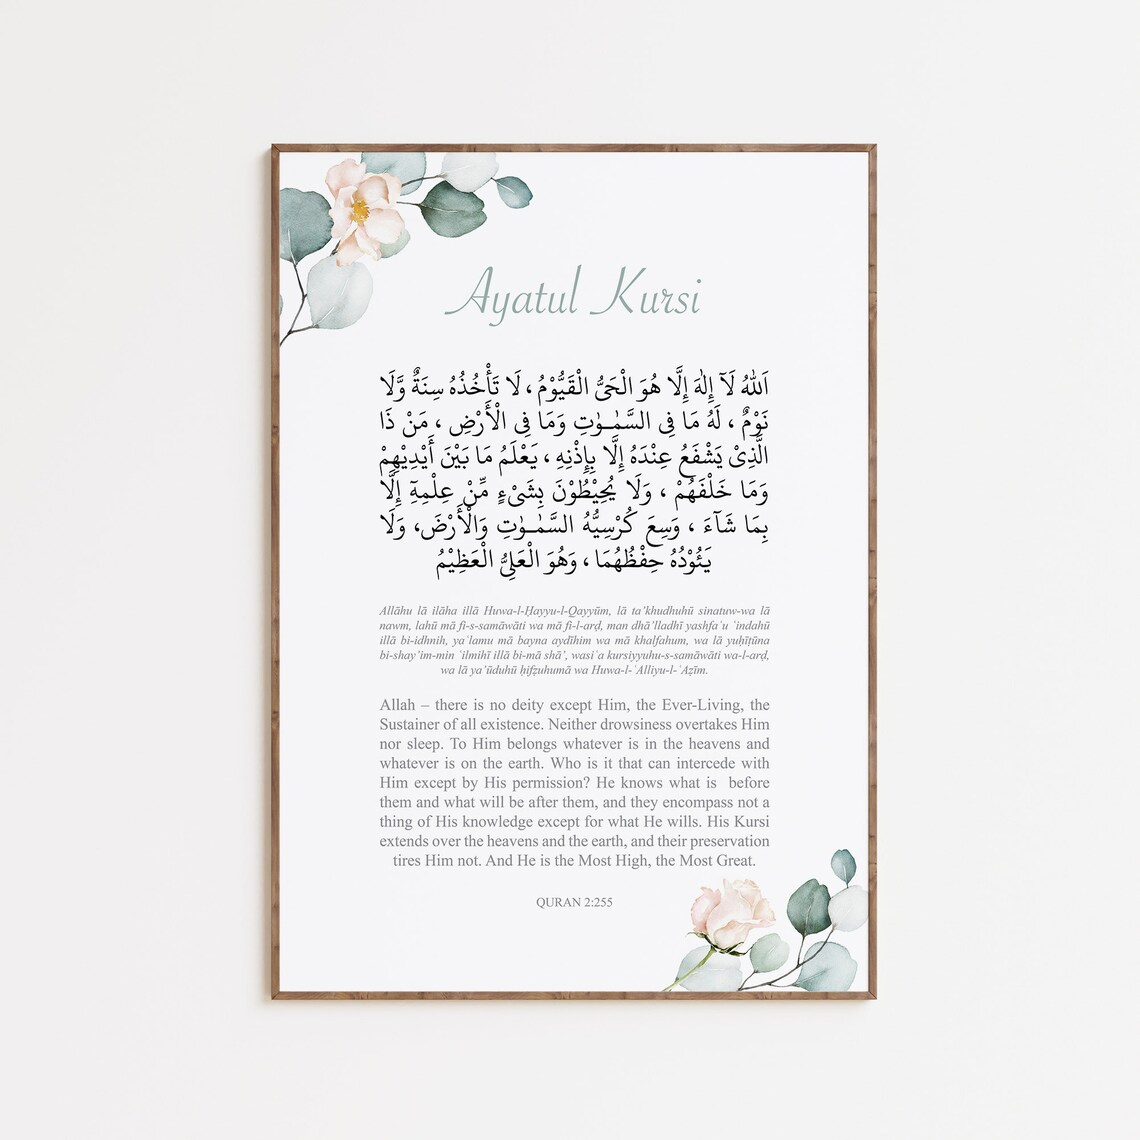 Ayatul Kursi
اَللّٰهُ لَآ إِلٰهَ إِلَّا هُوَ الْحَىُّ الْقَيُّوْمُ ، لَا تَأْخُذُهُ سِنَةٌ وَّلَا
نَوْمٌ ، لَهُ مَا فِى السَّمٰـوٰتِ وَمَا فِى الْأَرْضِ ، مَنْ ذَا
الَّذِىْ يَشْفَعُ عِنْدَهُ إِلَّا بِإِذْنِهِ ، يَعْلَمُ مَا بَيْنَ أَيْدِيْهِمْ
وَمَا خَلْفَهُمْ ، وَلَا يُحِيْطُوْنَ بِشَىْءٍ مِّنْ عِلْمِهٓ إِلَّا
بِمَا شَآءَ ، وَسِعَ كُرْسِيُّهُ السَّمٰـوٰتِ وَالْأَرْضَ، وَلَا
يَئُوْدُهُ حِفْظُهُمَا ، وَهُوَ الْعَلِىُّ الْعَظِيْمُ
Allāhu lā ilāha illā Huwa-l-Ḥayyu-l-Qayyūm, lā ta’khudhuhū sinatuw-wa lā
nawm, lahū mā fi-s-samāwāti wa mā fi-l-arḍ, man dhā’lladhī yashfaʿu ʿindahū
illā bi-idhnih, yaʿlamu mā bayna aydīhim wa mā khalfahum, wa lā yuḥīṭūna
bi-shay’im-min ʿilmihī illā bi-mā shā’, wasiʿa kursiyyuhu-s-samāwāti wa-l-arḍ,
wa lā ya’ūduhū ḥifẓuhumā wa Huwa-l-ʿAlliyu-l-ʿAẓīm.
Allah – there is no deity except Him, the Ever-Living, the
Sustainer of all existence. Neither drowsiness overtakes Him
nor sleep. To Him belongs whatever is in the heavens and
whatever is on the earth. Who is it that can intercede with
Him except by His permission? He knows what is before
them and what will be after them, and they encompass not a
thing of His knowledge except for what He wills. His Kursi
extends over the heavens and the earth, and their preservation
tires Him not. And He is the Most High, the Most Great.
QURAN 2:255